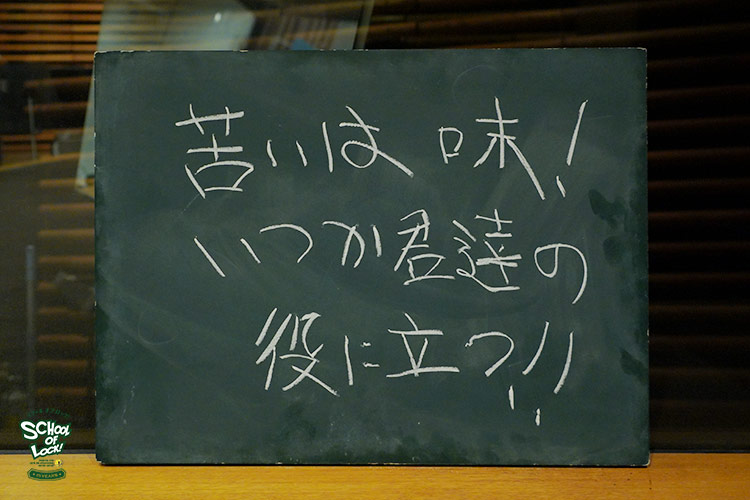 苦いは 味!
いつか君達の
役に立つ!!
SCHOOL
OF
LOCK!